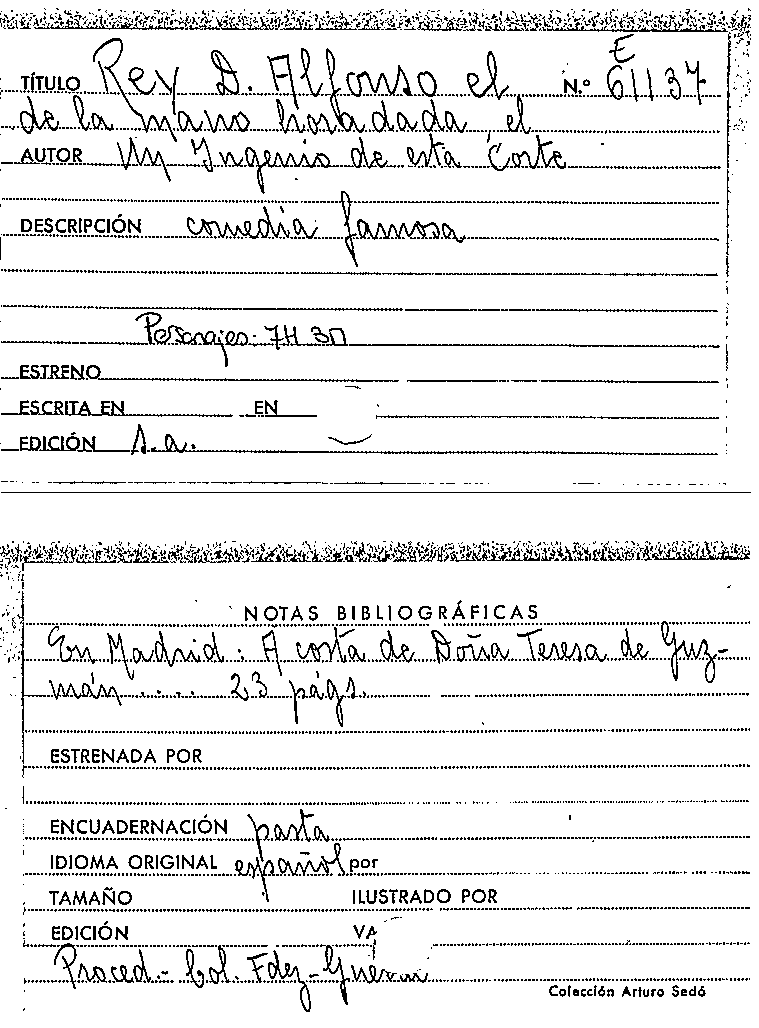 E
TÍTULO Rey D. Alfonso el N.º 61137
de la mano horadada, el
AUTOR Un Ingenio de esta Corte
DESCRIPCIÓN comedia famosa
Personajes: 7H 3M
ESTRENO
ESCRITA EN EN
EDICIÓN s.a.
NOTAS BIBLIOGRÁFICAS
En Madrid: A costa de Doña Teresa de Guz-
mán .... 23 págs.
ESTRENADA POR
ENCUADERNACIÓN pasta
IDIOMA ORIGINAL español por
TAMAÑO ILUSTRADO POR
EDICIÓN VA
Proced.- Col. Fdez-Guerra
Colección Arturo Sedó